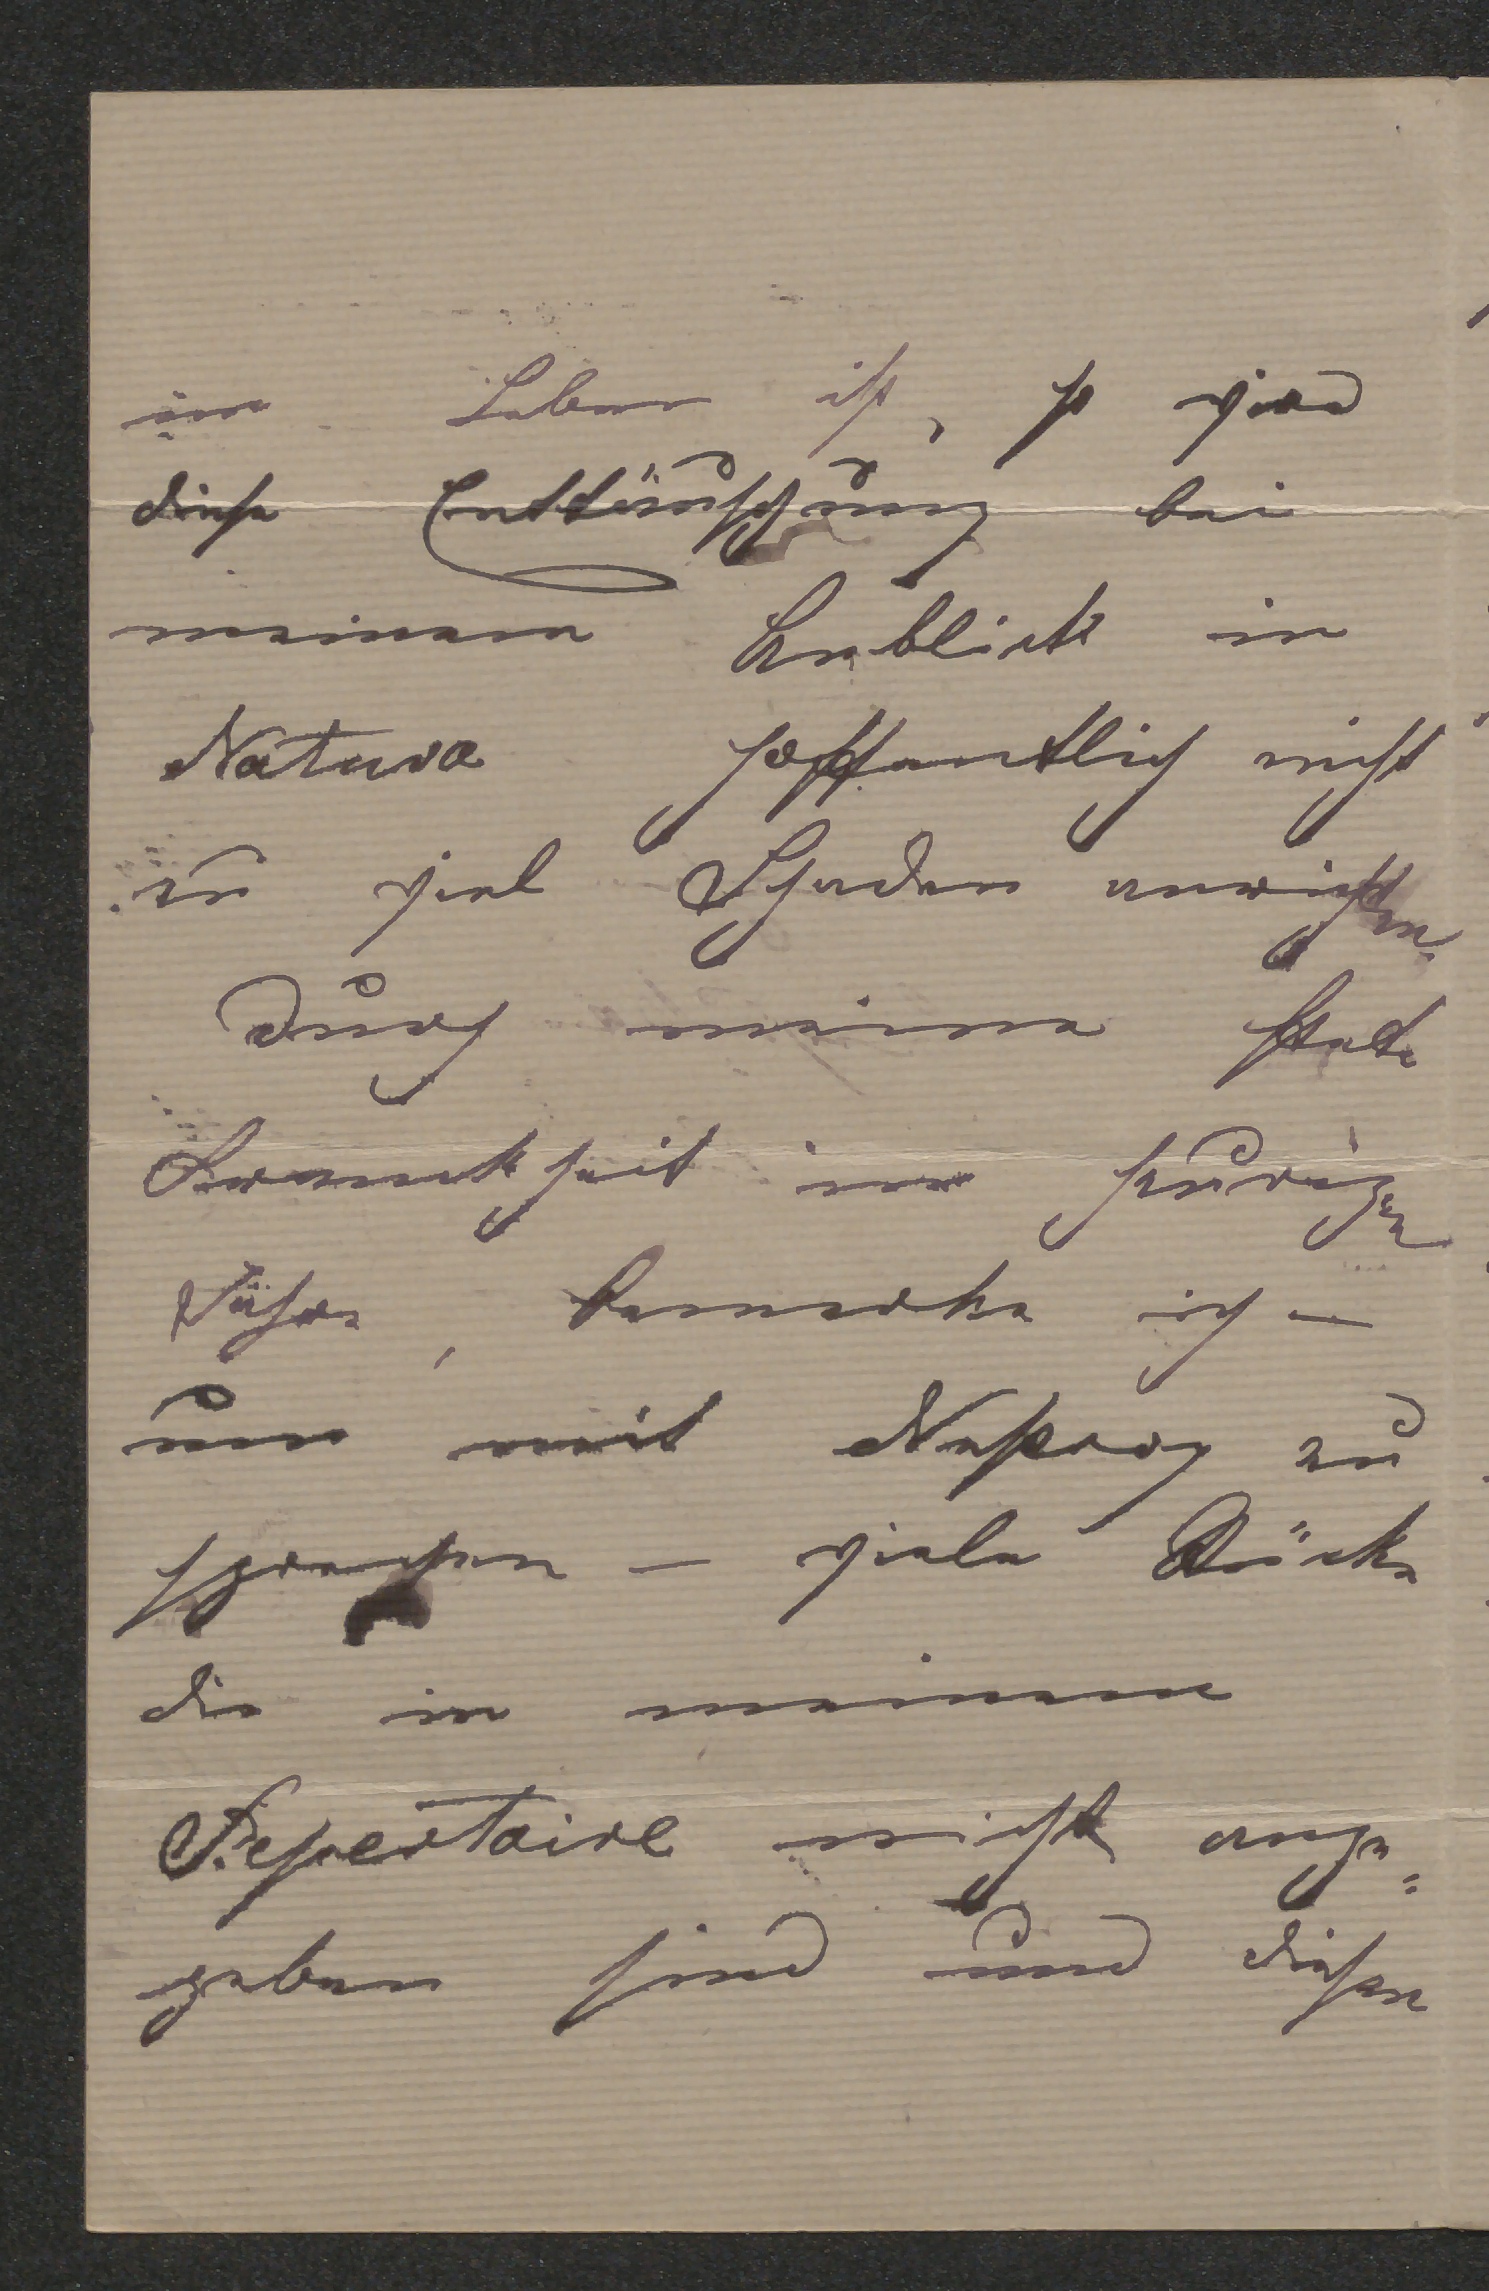 im Leben ist, so wird
diese Enttäuschung bei
meinem Anblick in
Natura hoffentlich nicht
zu viel Schaden anrichten.
Durch meine stete
Krankheit im heurigen
Jahre, bemerke ich —
um mit Nestroy zu
sprechen — viele
die in meinem
Repertoire nicht ange=
geben sind und diesen